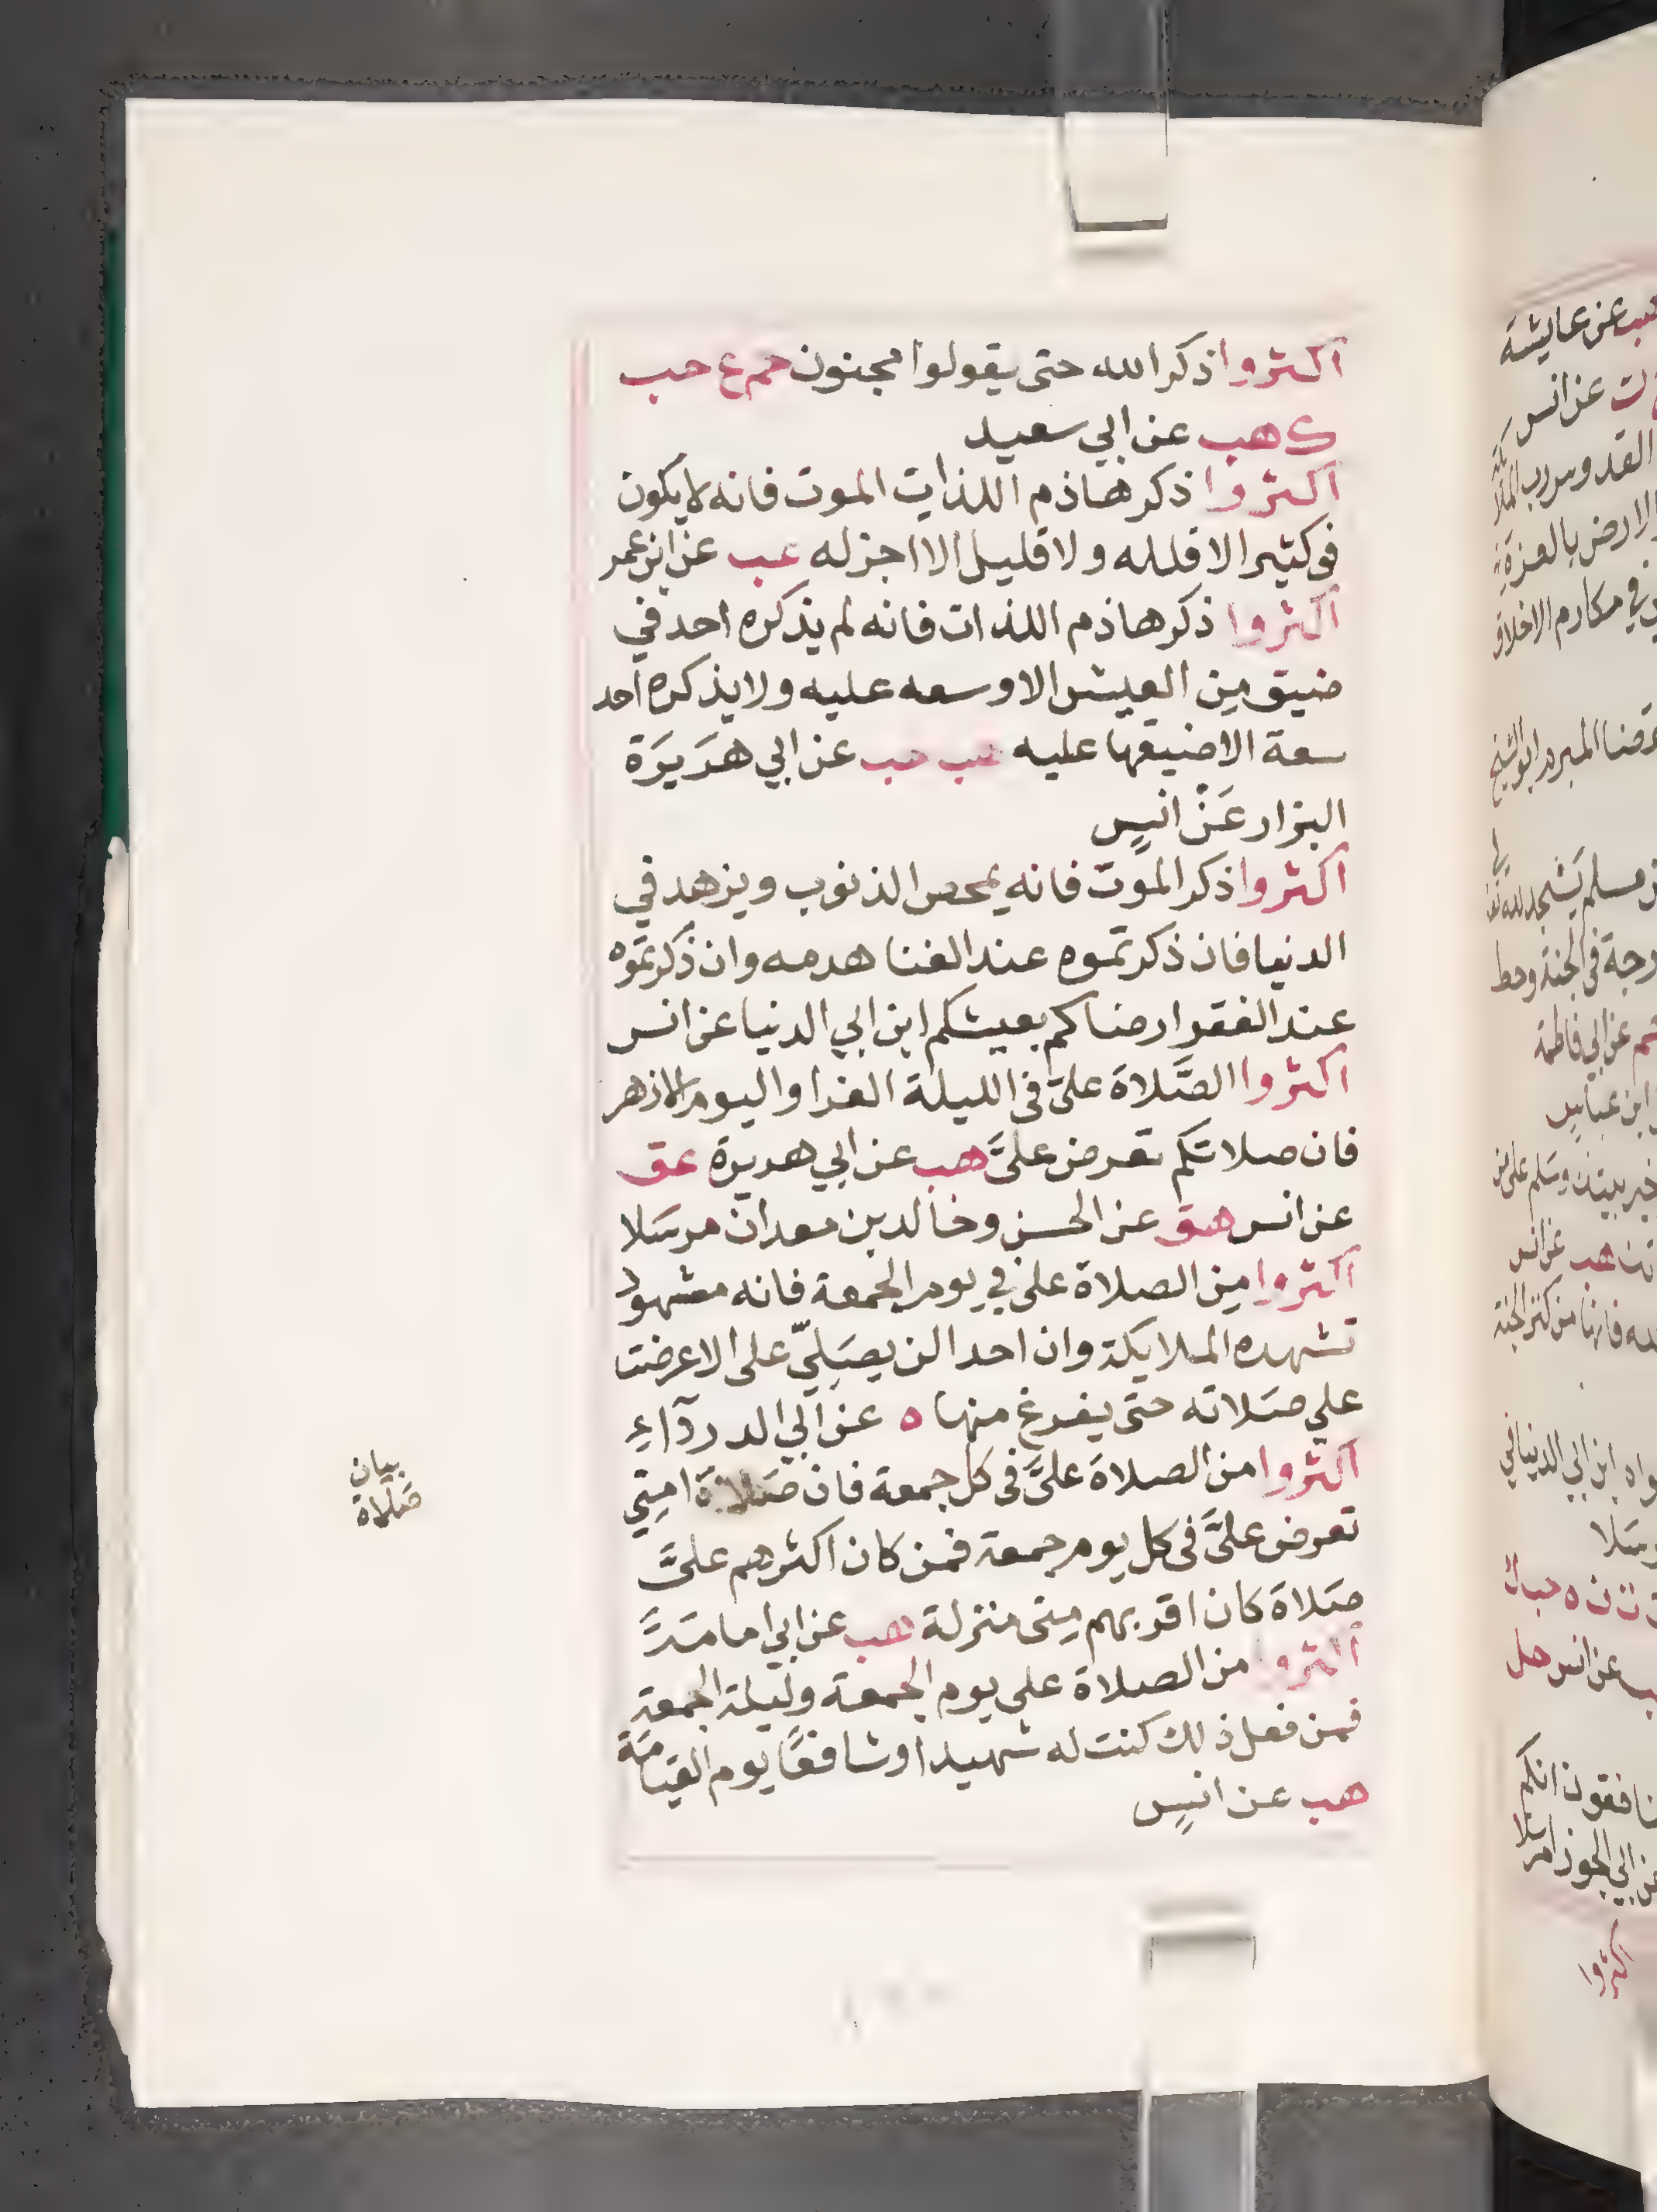 اكثروا ذكر الله حتى يقولوا مجنون حم ع حب
ك هب عن ابي سعيد
اكثروا ذكر هاذم اللذات الموت فانه لا يكون
في كثير الا قلله ولا قليل الا اجزله هب عن ابن عمر
اكثروا ذكر هاذم اللذات فانه لم يذكره احد في
ضيق من العيش الا وسعه عليه ولا يذكره احد
سعة الا ضيقها عليه هب حب عن ابي هريرة
البزار عن انس
اكثروا ذكر الموت فانه يمحص الذنوب ويزهد في
الدنيا فان ذكرتموه عند الغنا هدمه وان ذكرتموه
عند الفقر ارضاكم بعيشكم ابن ابي الدنيا عن انس
اكثروا الصَّلاة علىَّ فى الليلة الغرا واليوم الازهر
فان صلاتكم تعرض علىَّ هب عن ابي هريرة عق
عن انس هق عن الحسن وخالد بن معدان مرسَلا
اكثروا مِن الصلاة على في يوم الجمعة فانه مشهود
تشهده الملايكة وان احدا لن يصَلِيّ على الا عرضت
علي صَلاته حتى يفرغ منها ه عن ابي الدردآءِ
اكثروا من الصلاة علىَّ فى كل جمعة فان صَلاةَ امتِي
تعرض علىَّ فى كل يوم جمعة فمن كان اكثرهم علىَّ
صَلاة كان اقربهم مِنى منزلة هب عن ابي امامَة
اكثروا من الصلاة على يوم الجمعة وليلة الجمعة
فمن فعل ذلك كنت له شهيدا وشافعًا يوم القيامَة
هب عن انسٍ
بيان
صَلاة
هب عن عايشة
ت عن انس
في مكارم الاخلاق
عن ابي فاطمة
ابن عباس
هب عن انس
اكثروا